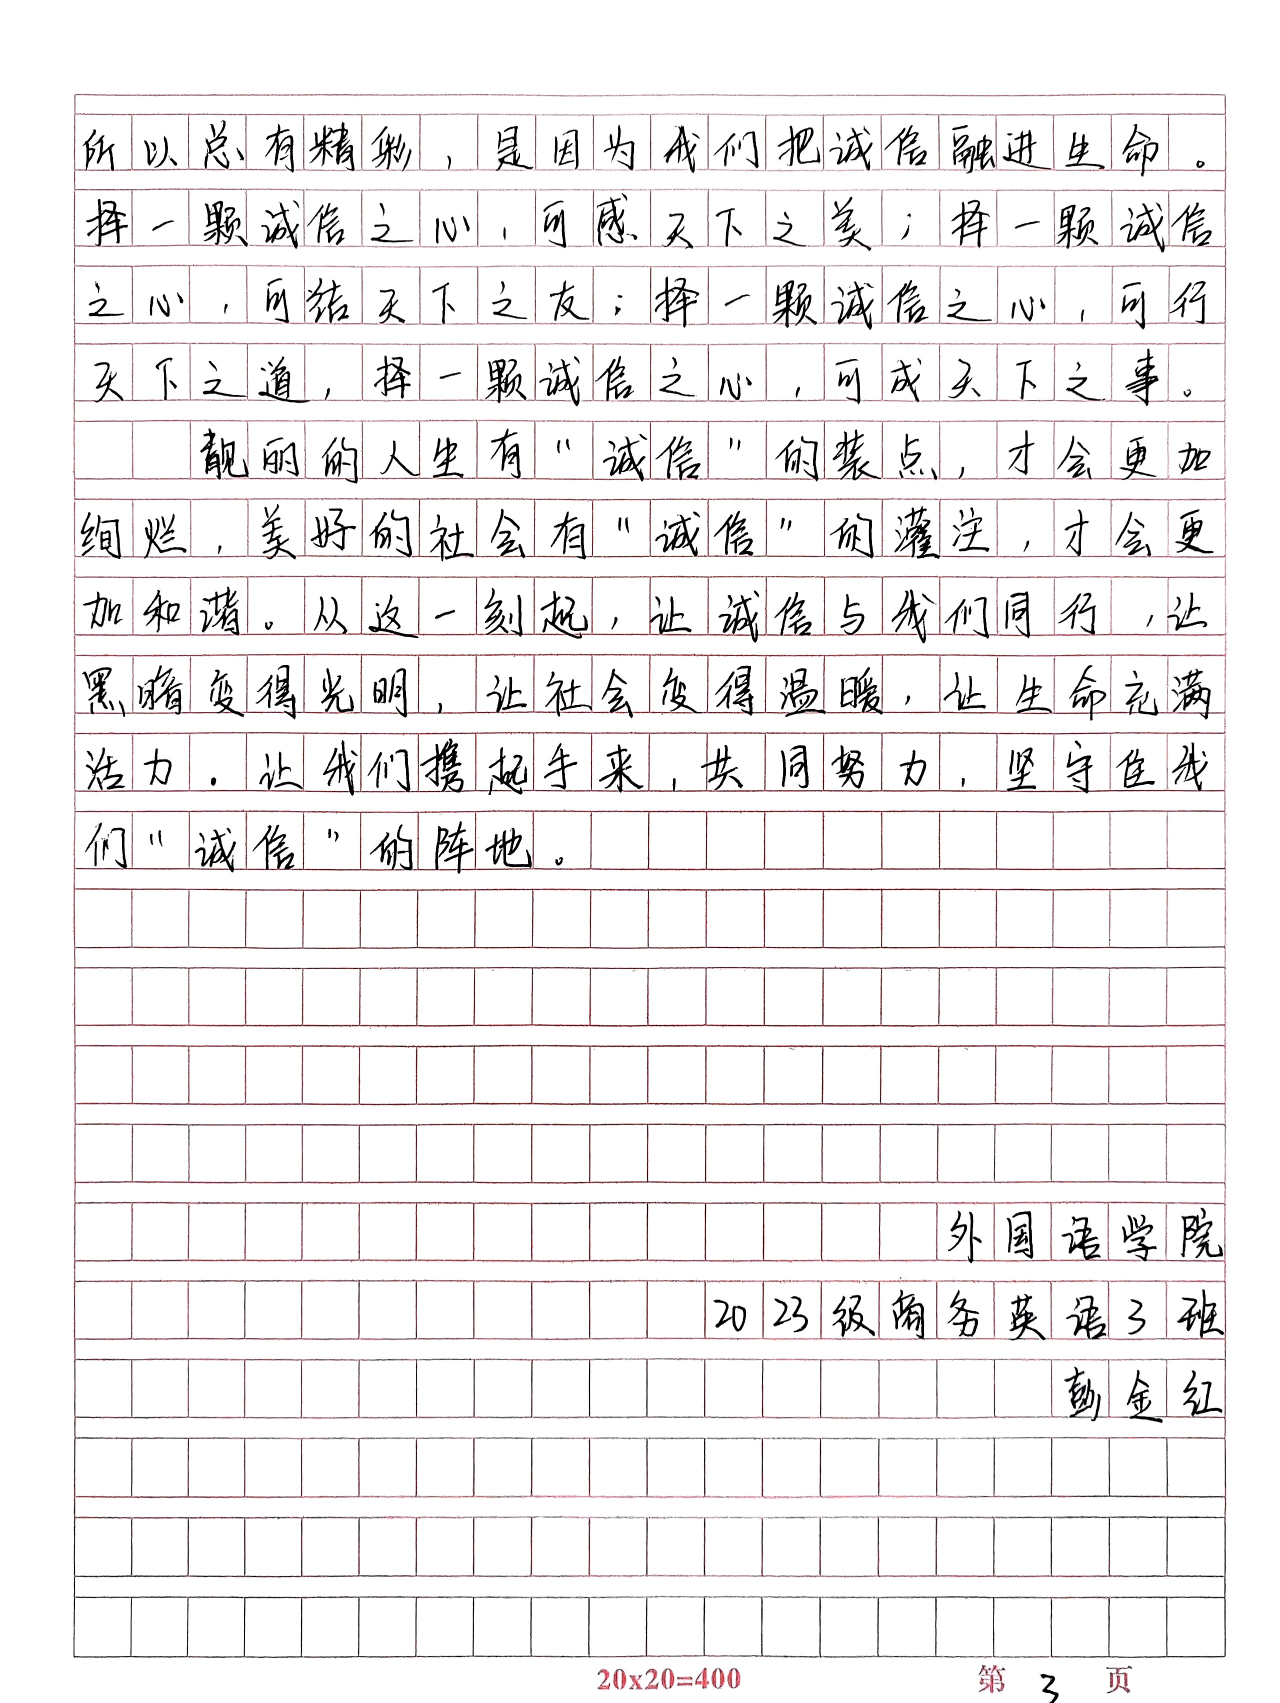 所以总有精彩，是因为我们把诚信融进生命。
择一颗诚信之心，可感天下之美；择一颗诚信
之心，可结天下之友；择一颗诚信之心，可行
天下之道，择一颗诚信之心，可成天下之事。
靓丽的人生有“诚信”的装点，才会更加
绚烂，美好的社会有“诚信”的灌注，才会更
加和谐。从这一刻起，让诚信与我们同行，让
黑暗变得光明，让社会变得温暖，让生命充满
活力。让我们携起手来，共同努力，坚守住我
们“诚信”的阵地。
外国语学院
2023级商务英语3班
彭金红
20x20=400 第 3 页